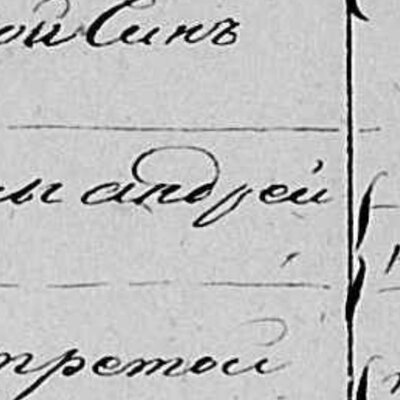 ой Синъ
ы андрей
третой